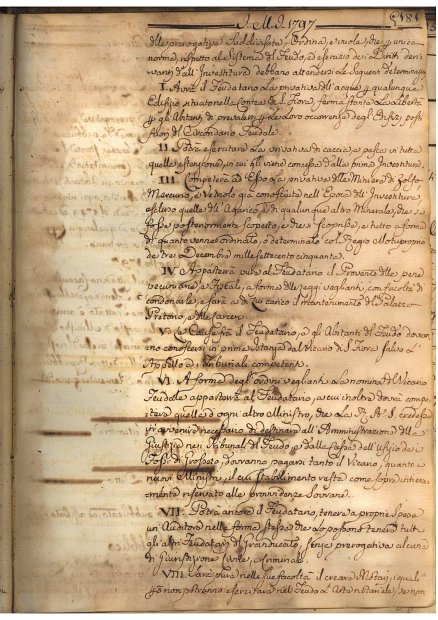 J.M.J. 1797 181
delle prerogative suddivisate, ordina, e vuole, che p. unica
norma, rispetto al sistema del Feudo, e esercizio dei Diritti deri-
vanti dall'Investitura debbano attendersi le seguenti determinazioni
I. Avrà il Feudatario la privativa dell'acque p. qualunque
Edifizio situato nella Contea di S. Fiora, ferma stante la libertà
p. gli Abitanti di prevalersi p. le loro occorrenze degli Edifizj posti
fuori del Circondario Feudale.
II. Potrà esercitare la privativa di caccia, e pesca in tutta
quella estensione, in cui gli viene concessa dalla prima Investitura
III. Competerà ad Esso la privativa delle Miniere di Zolfo,
Mercurio, e Vetriolo già conosciute nell'Epoca dell'Investitura
escluso quelle dell'Antimonio, e di qualunque altro Minerale, che si
fosse posteriormente scoperto, o che si scoprisse, e tutto a forma
di quanto venne ordinato, e determinato col Regio Motuproprio
de tre Decembre mille settecento cinquanta.
IV. Apparterrà pure al Feudatario il Provento delle pene
pecuniarie, e fiscali, a forma delle Leggi veglianti, con facoltà di
condonarle, e sarà a di lui carico il mantenimento del Palazzo
Pretorio, e delle Carceri.
V. Le Cause fra il Feudatario, e gli Abitanti del Feudo dovran-
no conoscersi in prima istanza dal Vicario di S. Fiora salvo l'
Appello ai Tribunali competenti.
VI. A forma degl'ordini veglianti la nomina del Vicario
Feudale apparterrà al Feudatario, a cui inoltre dovrà compe-
tere quella d'ogni altro Ministro, che la R. A. S. credesse
in avvenire necessario di destinare all'Amministrazione della
Giustizia nei Tribunali del Feudo, e dalla Cassa dell'Ufizio dei
Fossi di Grosseto, dovranno pagarsi tanto il Vicario, quanto i
nuovi Ministri, il cui stabilimento resta come sopra intiera-
mente riservato alle provvidenze Sovrane.
VII. Potrà ancora il Feudatario, tenere a proprie spese
un Auditore nella forma stessa che lo possono tenere tutti
gli altri Feudatari del Granducato, senza prerogativa alcuna
di Giurisdizione Civile, e Criminale.
VIII. Sarà pure nelle sue facoltà il creare Notari, i quali
però non potranno esercitare nel Feudo l'Arte notariale, se non